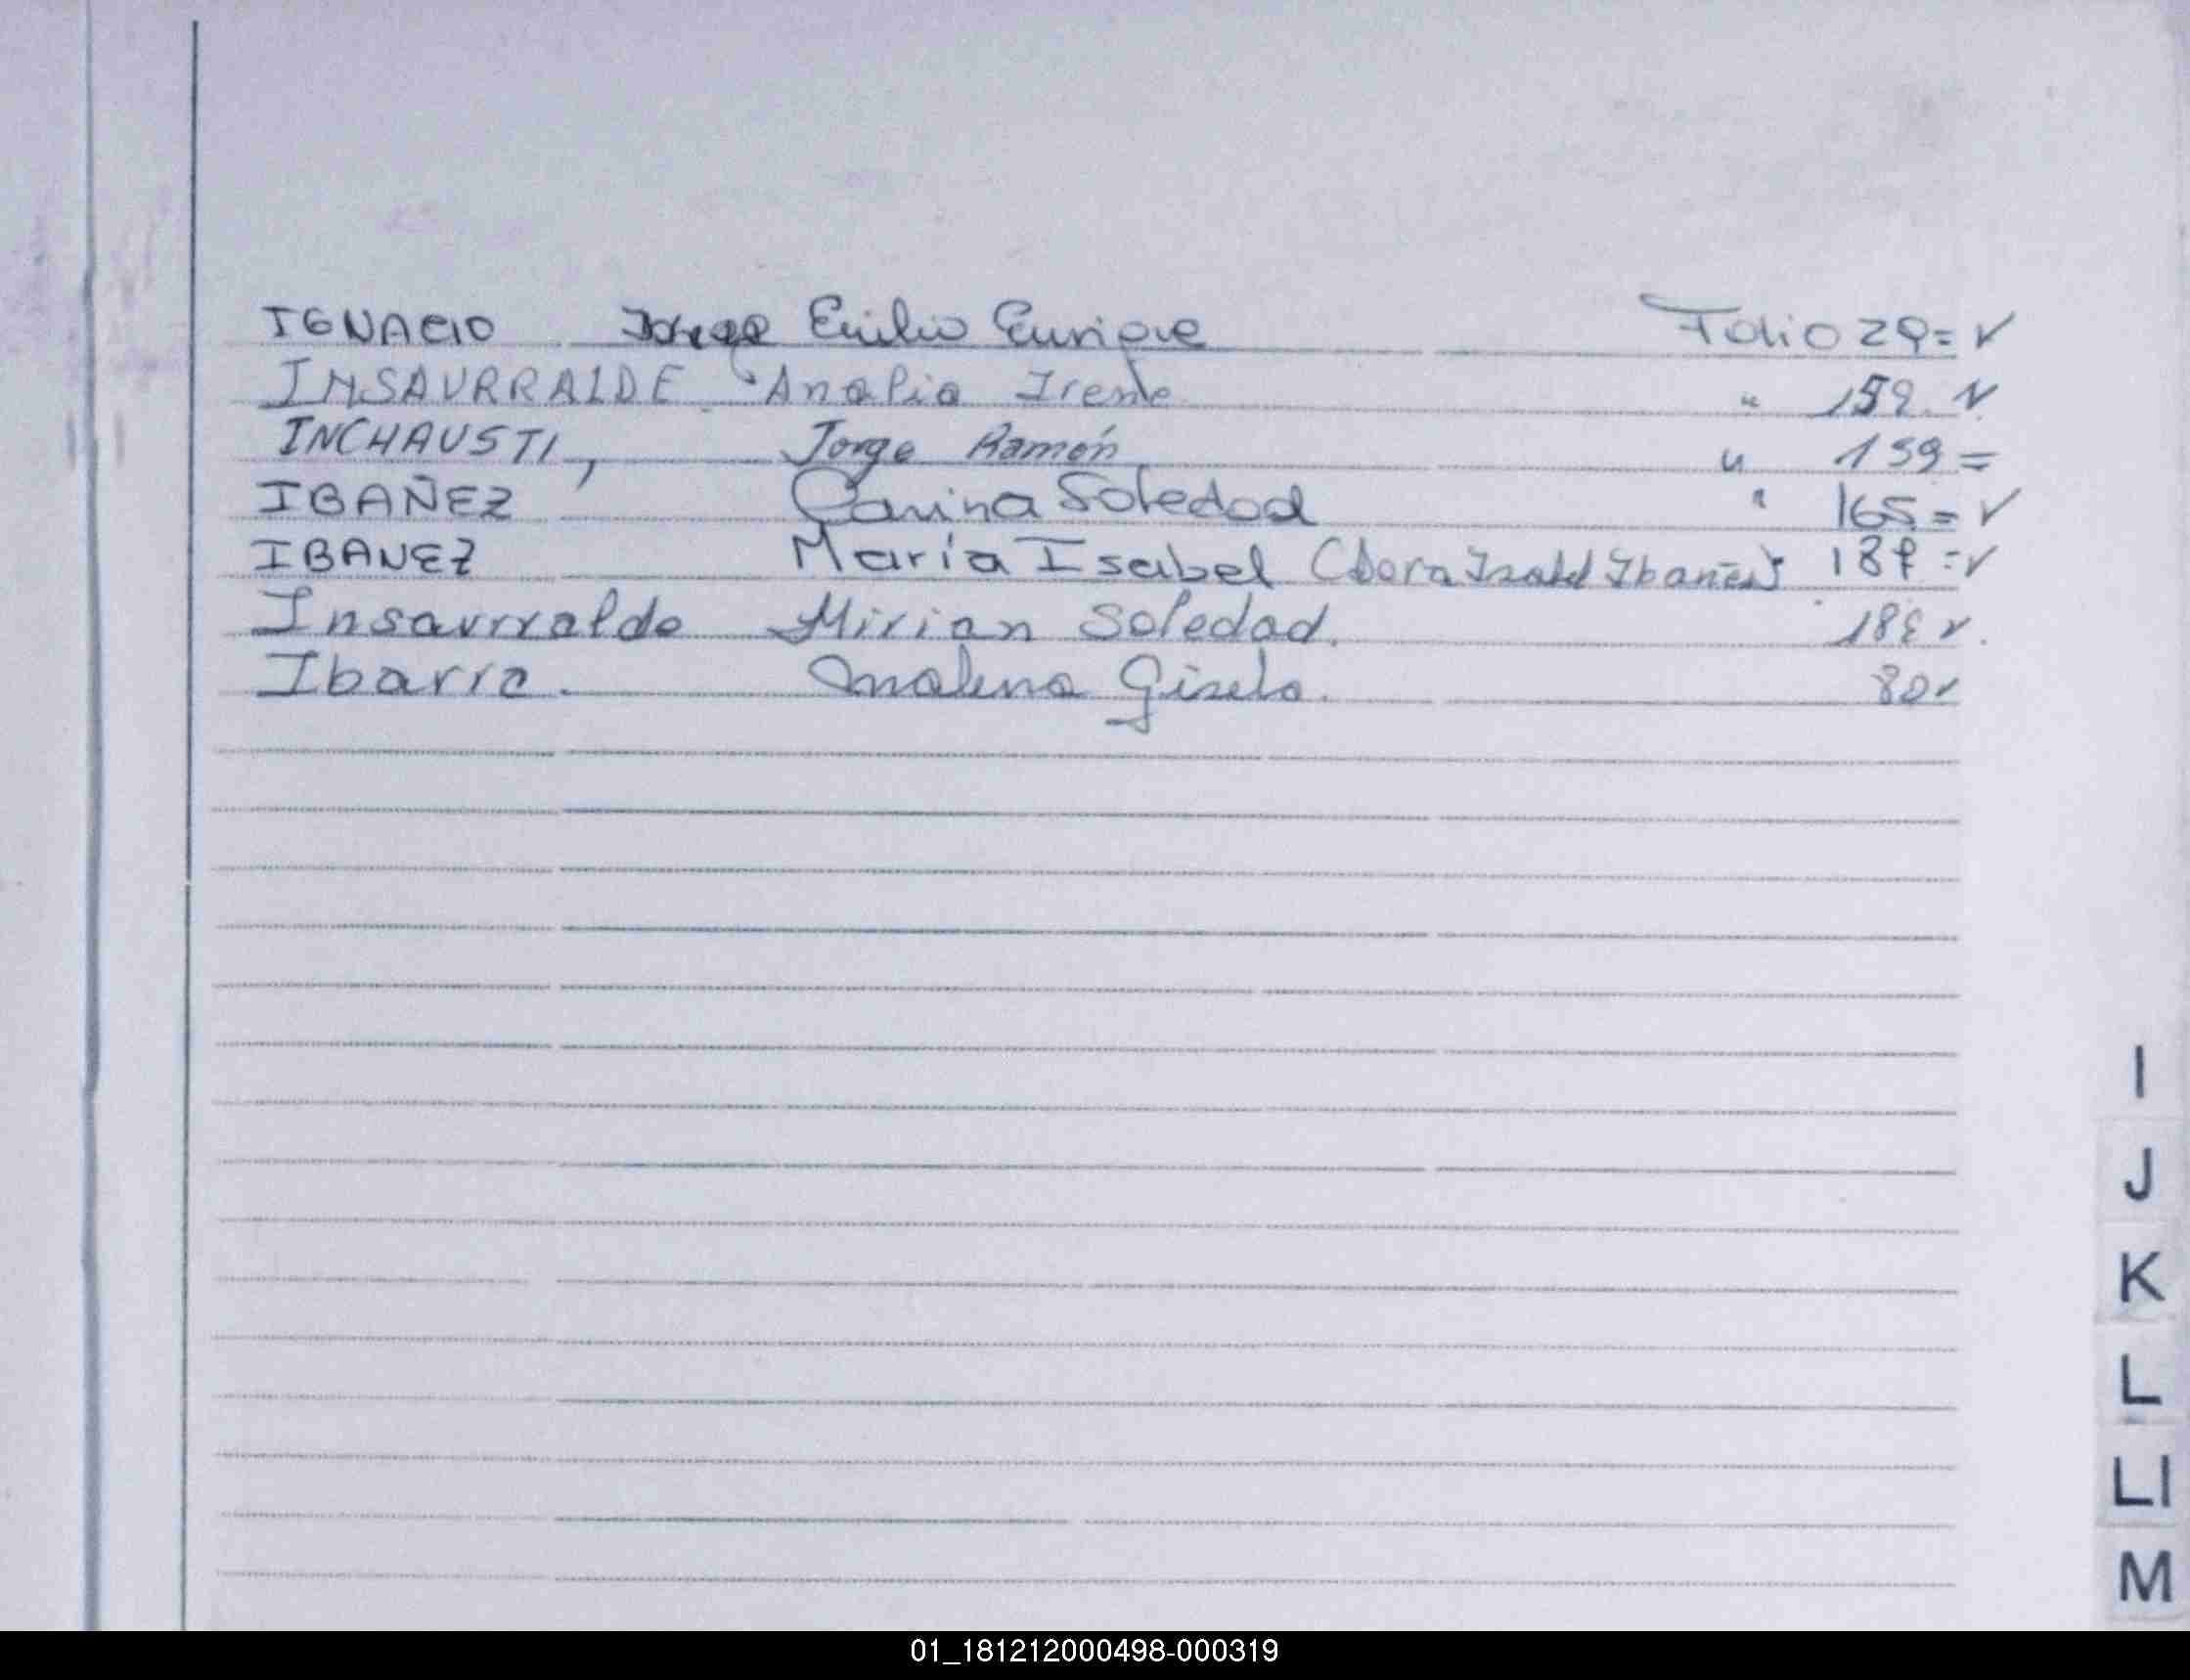 IGNACIO Jorge Emilio Enrique Folio 29= ✓
INSAURRALDE Analia Irene " 159. ✓
INCHAUSTI, Jorge Ramón " 159=
IBAÑEZ Carina Soledad " 165= ✓
IBANEZ María Isabel (Dora Isabel Ibañez) 187=✓
Insaurralde Mirian Soledad. 188 ✓.
Ibarra. Malena Gisela. 80✓
I
J
K
L
Ll
M
01_181212000498-000319